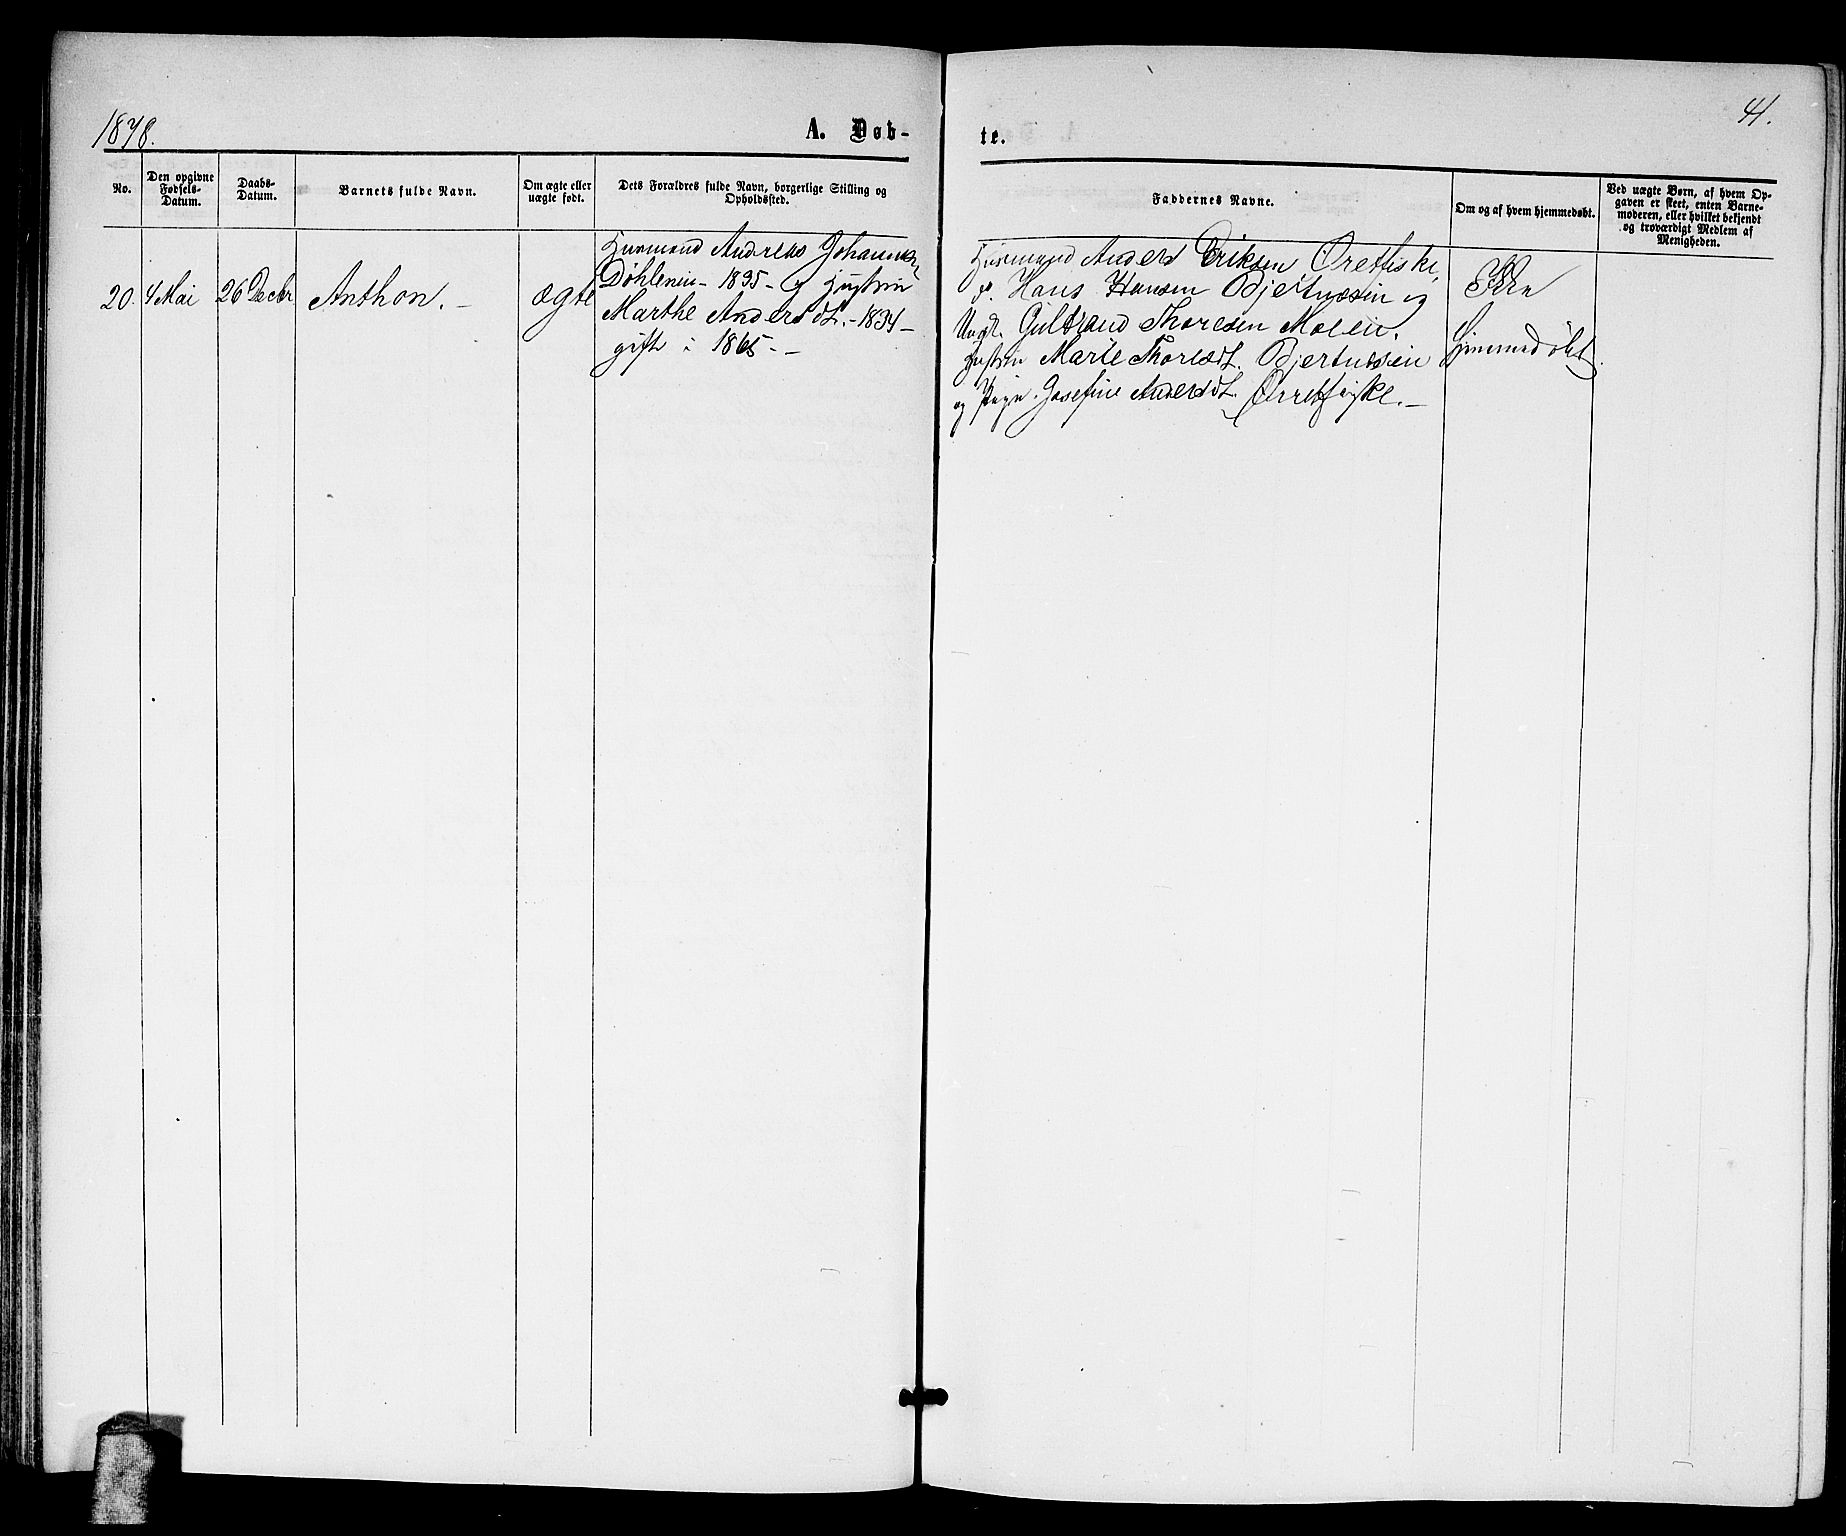 1878.
A. Døb-
te.
41.
No.
Den opgivne
Fødsels-
Datum.
Daabs-
Datum.
Barnets fulde Navn.
Om ægte eller
uægte født.
Dets Forældres fulde Navn, borgerlige Stilling og
Opholdssted.
Faddernes Navne.
Om og af hvem hjemmedøbt.
Ved uægte Børn, af hvem Op-
gaven er skeet, enten Barne-
moderen, eller hvilket bekjendt
og troværdigt Medlem af
Menigheden.
20.
4 Mai
26 Decbr
Anthon.-
ægte
Huusmand Andreas Johannes
Døhleneie - 1835 - og Hustrue
Marthe Andersdt. - 1834 -
gift i 1865. -
Huusmand Anders Eriksen Øretfiske,
do. Hans Hansen Bjertnæseie og
Ungk. Gulbrand Thoresen Moeeie.
Hustrue Marie Thoresdt. Bjertnæseie
og Pige Josefine Andersdt. Ørretfiske. -
Hjemmedøbt